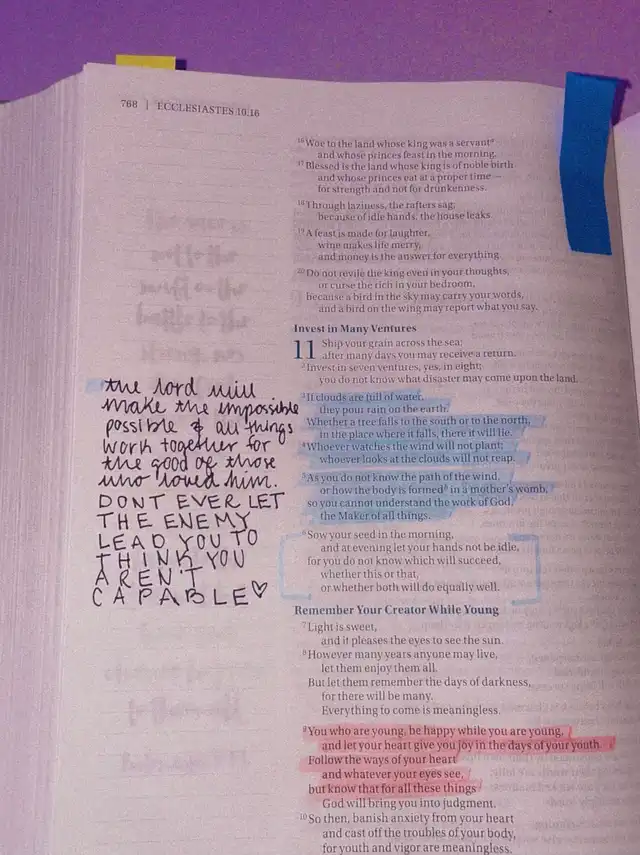 768 | ECCLESIASTES 10:16
¹⁶Woe to the land whose king was a servantᵃ
and whose princes feast in the morning.
¹⁷Blessed is the land whose king is of noble birth
and whose princes eat at a proper time —
for strength and not for drunkenness.
¹⁸Through laziness, the rafters sag;
because of idle hands, the house leaks.
¹⁹A feast is made for laughter,
wine makes life merry,
and money is the answer for everything.
²⁰Do not revile the king even in your thoughts,
or curse the rich in your bedroom,
because a bird in the sky may carry your words,
and a bird on the wing may report what you say.
Invest in Many Ventures
11 Ship your grain across the sea;
after many days you may receive a return.
²Invest in seven ventures, yes, in eight;
you do not know what disaster may come upon the land.
³If clouds are full of water,
they pour rain on the earth.
Whether a tree falls to the south or to the north,
in the place where it falls, there it will lie.
⁴Whoever watches the wind will not plant;
whoever looks at the clouds will not reap.
⁵As you do not know the path of the wind,
or how the body is formedᵇ in a mother's womb,
so you cannot understand the work of God,
the Maker of all things.
⁶Sow your seed in the morning,
and at evening let your hands not be idle,
for you do not know which will succeed,
whether this or that,
or whether both will do equally well.
Remember Your Creator While Young
⁷Light is sweet,
and it pleases the eyes to see the sun.
⁸However many years anyone may live,
let them enjoy them all.
But let them remember the days of darkness,
for there will be many.
Everything to come is meaningless.
⁹You who are young, be happy while you are young,
and let your heart give you joy in the days of your youth.
Follow the ways of your heart
and whatever your eyes see,
but know that for all these things
God will bring you into judgment.
¹⁰So then, banish anxiety from your heart
and cast off the troubles of your body,
for youth and vigor are meaningless.
the lord will
make the impossible
possible & all things
work together for
the good of those
who loved him.
DONT EVER LET
THE ENEMY
LEAD YOU TO
THINK YOU
AREN'T
CAPABLE♡